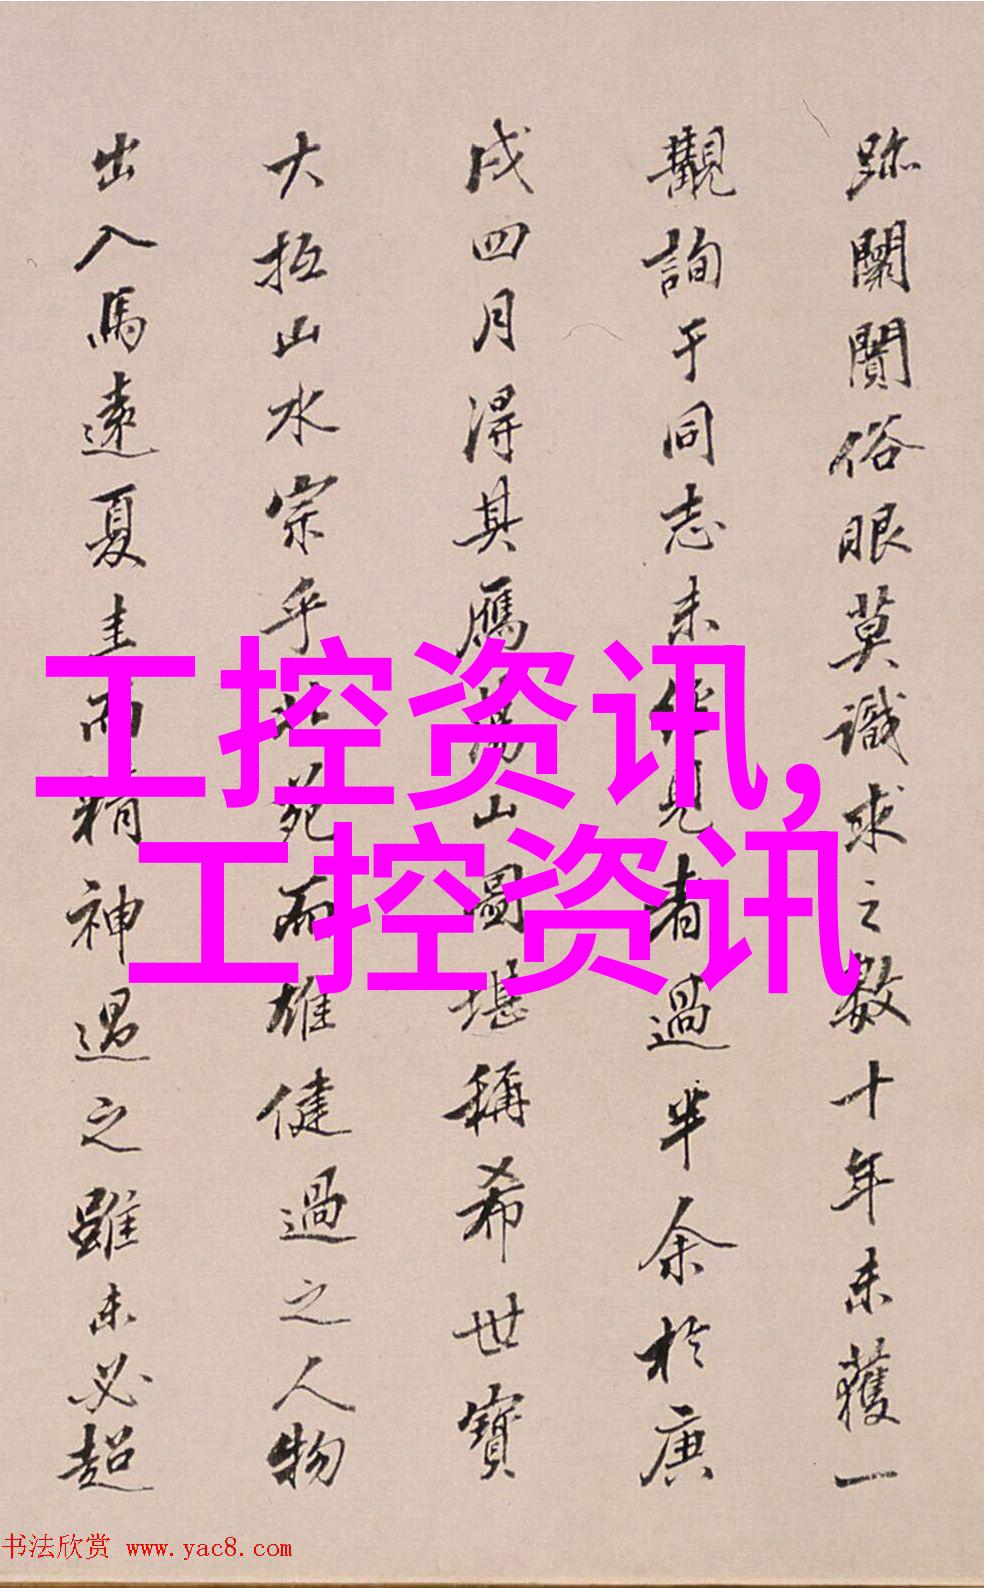 跡闌闠俗眼莫識求之數十年未獲一
觀詢于同志未作見者過半余於庚
戌四月得其鴈蕩山圖堪稱希世寶
大抵山水宗乎北苑而雄健過之人物
出入馬遠夏圭而精神過之雖未必超
工控资讯,
工控资讯
书法欣赏 www.yac8.com